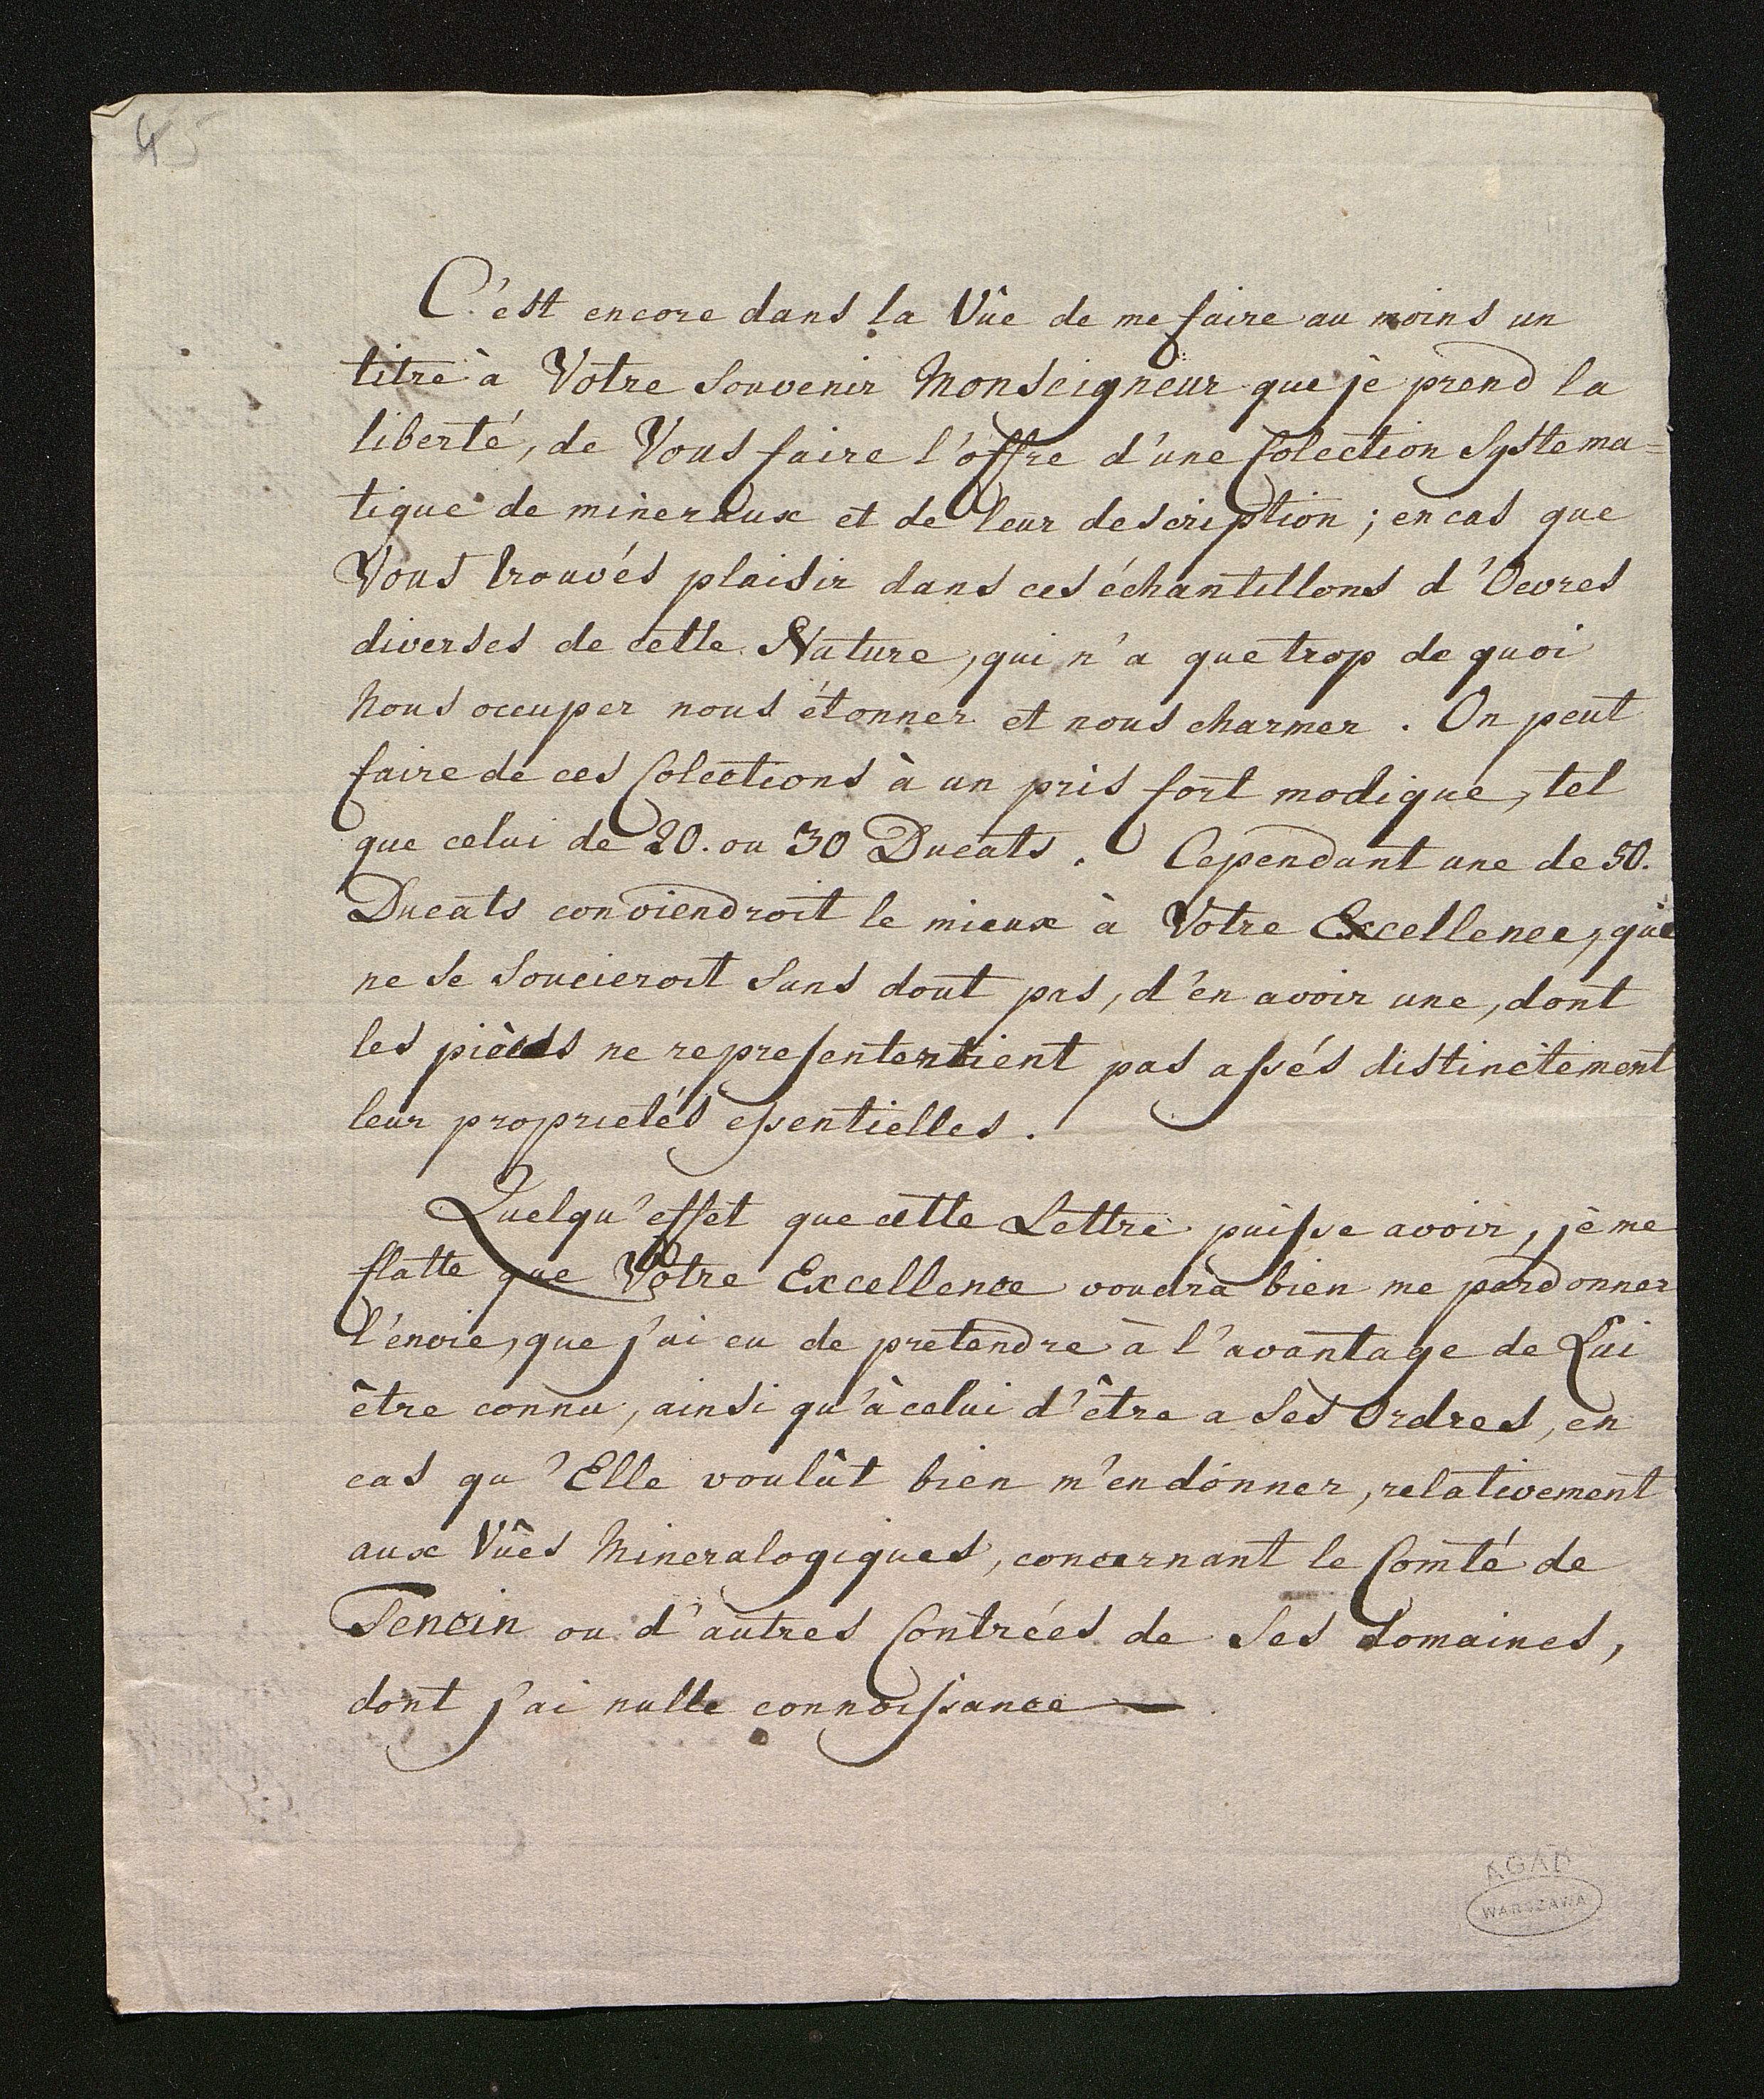 45
C'est encore dans la Vûe de me faire au moins un
titre à Votre Souvenir Monseigneur que je prend la
liberté, de Vous faire l'offre d'une Colection Systema=
tique de mineraux et de leur description ; en cas que
Vous trouvés plaisir dans ces échantillons d'Oevres
diverses de cette Nature, qui n'a que trop de quoi
nous occuper nous étonner et nous charmer . On peut
faire de ces Colections à un pris fort modique, tel
que celui de 20. ou 30 Ducats . Cependant une de 50.
Ducats conviendroit le mieux à Votre Excellence, qui
ne se soucieroit sans dout pas, d'en avoir une, dont
les pièces ne representeroient pas assés distinctement
leur proprietés essentielles .
Quelqu'effet que cette Lettre puisse avoir, je me
flatte que Votre Excellence voudra bien me pardonner
l'envie, que j'ai eu de pretendre à l'avantage de Lui
être connu, ainsi qu'à celui d'être a Ses Ordres, en
cas qu'Elle voulût bien m'en donner, relativement
aux Vûes Mineralogiques, concernant le Comté de
Tencin ou d'autres Contrées de Ses Domaines,
dont j'ai nulle connoissance —
AGAD
WARSZAWA